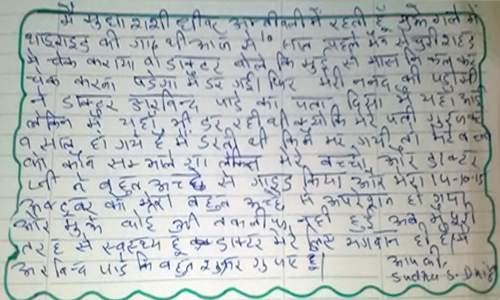 मैं सुधा शशी दीक्षीट अम्बीवली में रहती हूँ मुझे गले में
थाइराइड की गाठ थी आज से १० साल पहले मैने सेपुरी शहाड
में चेक कराया वो डाक्टर बोले कि सुई से मास निकालकर
चेक करना पडेगा मैं डर गई फिर मेरी ननंद की पडोसी
ने डाक्टर अरविन्द पांडे का पता दिया मैं यहाँ आई
लेकिन मैं यहाँ भी डर रही थी क्योकि मेरे पती गुजरकर
२ साल हो गये है मैं डरती थी कि मैं मर गयी तो मेरे बच्चे
को कौन सम्भाले गा मेरे बच्चो और डाक्टर
जी ने बहुत अच्छे से गाइड किया और मेरा 14-10-15
अक्टूबर को मेरा बहुत अच्छे से अपरेशन हो गया
और मुझे कोई भी तकलीफ नही हुई अब मैं पुरी
तरह से स्वस्थ्य हूँ डाक्टर मेरे लिए भगवान ही है मैं
अरविन्द पांडे कि बहुत शुक्र गुजार हूँ।
आपकी,
Sudha S. Dixit